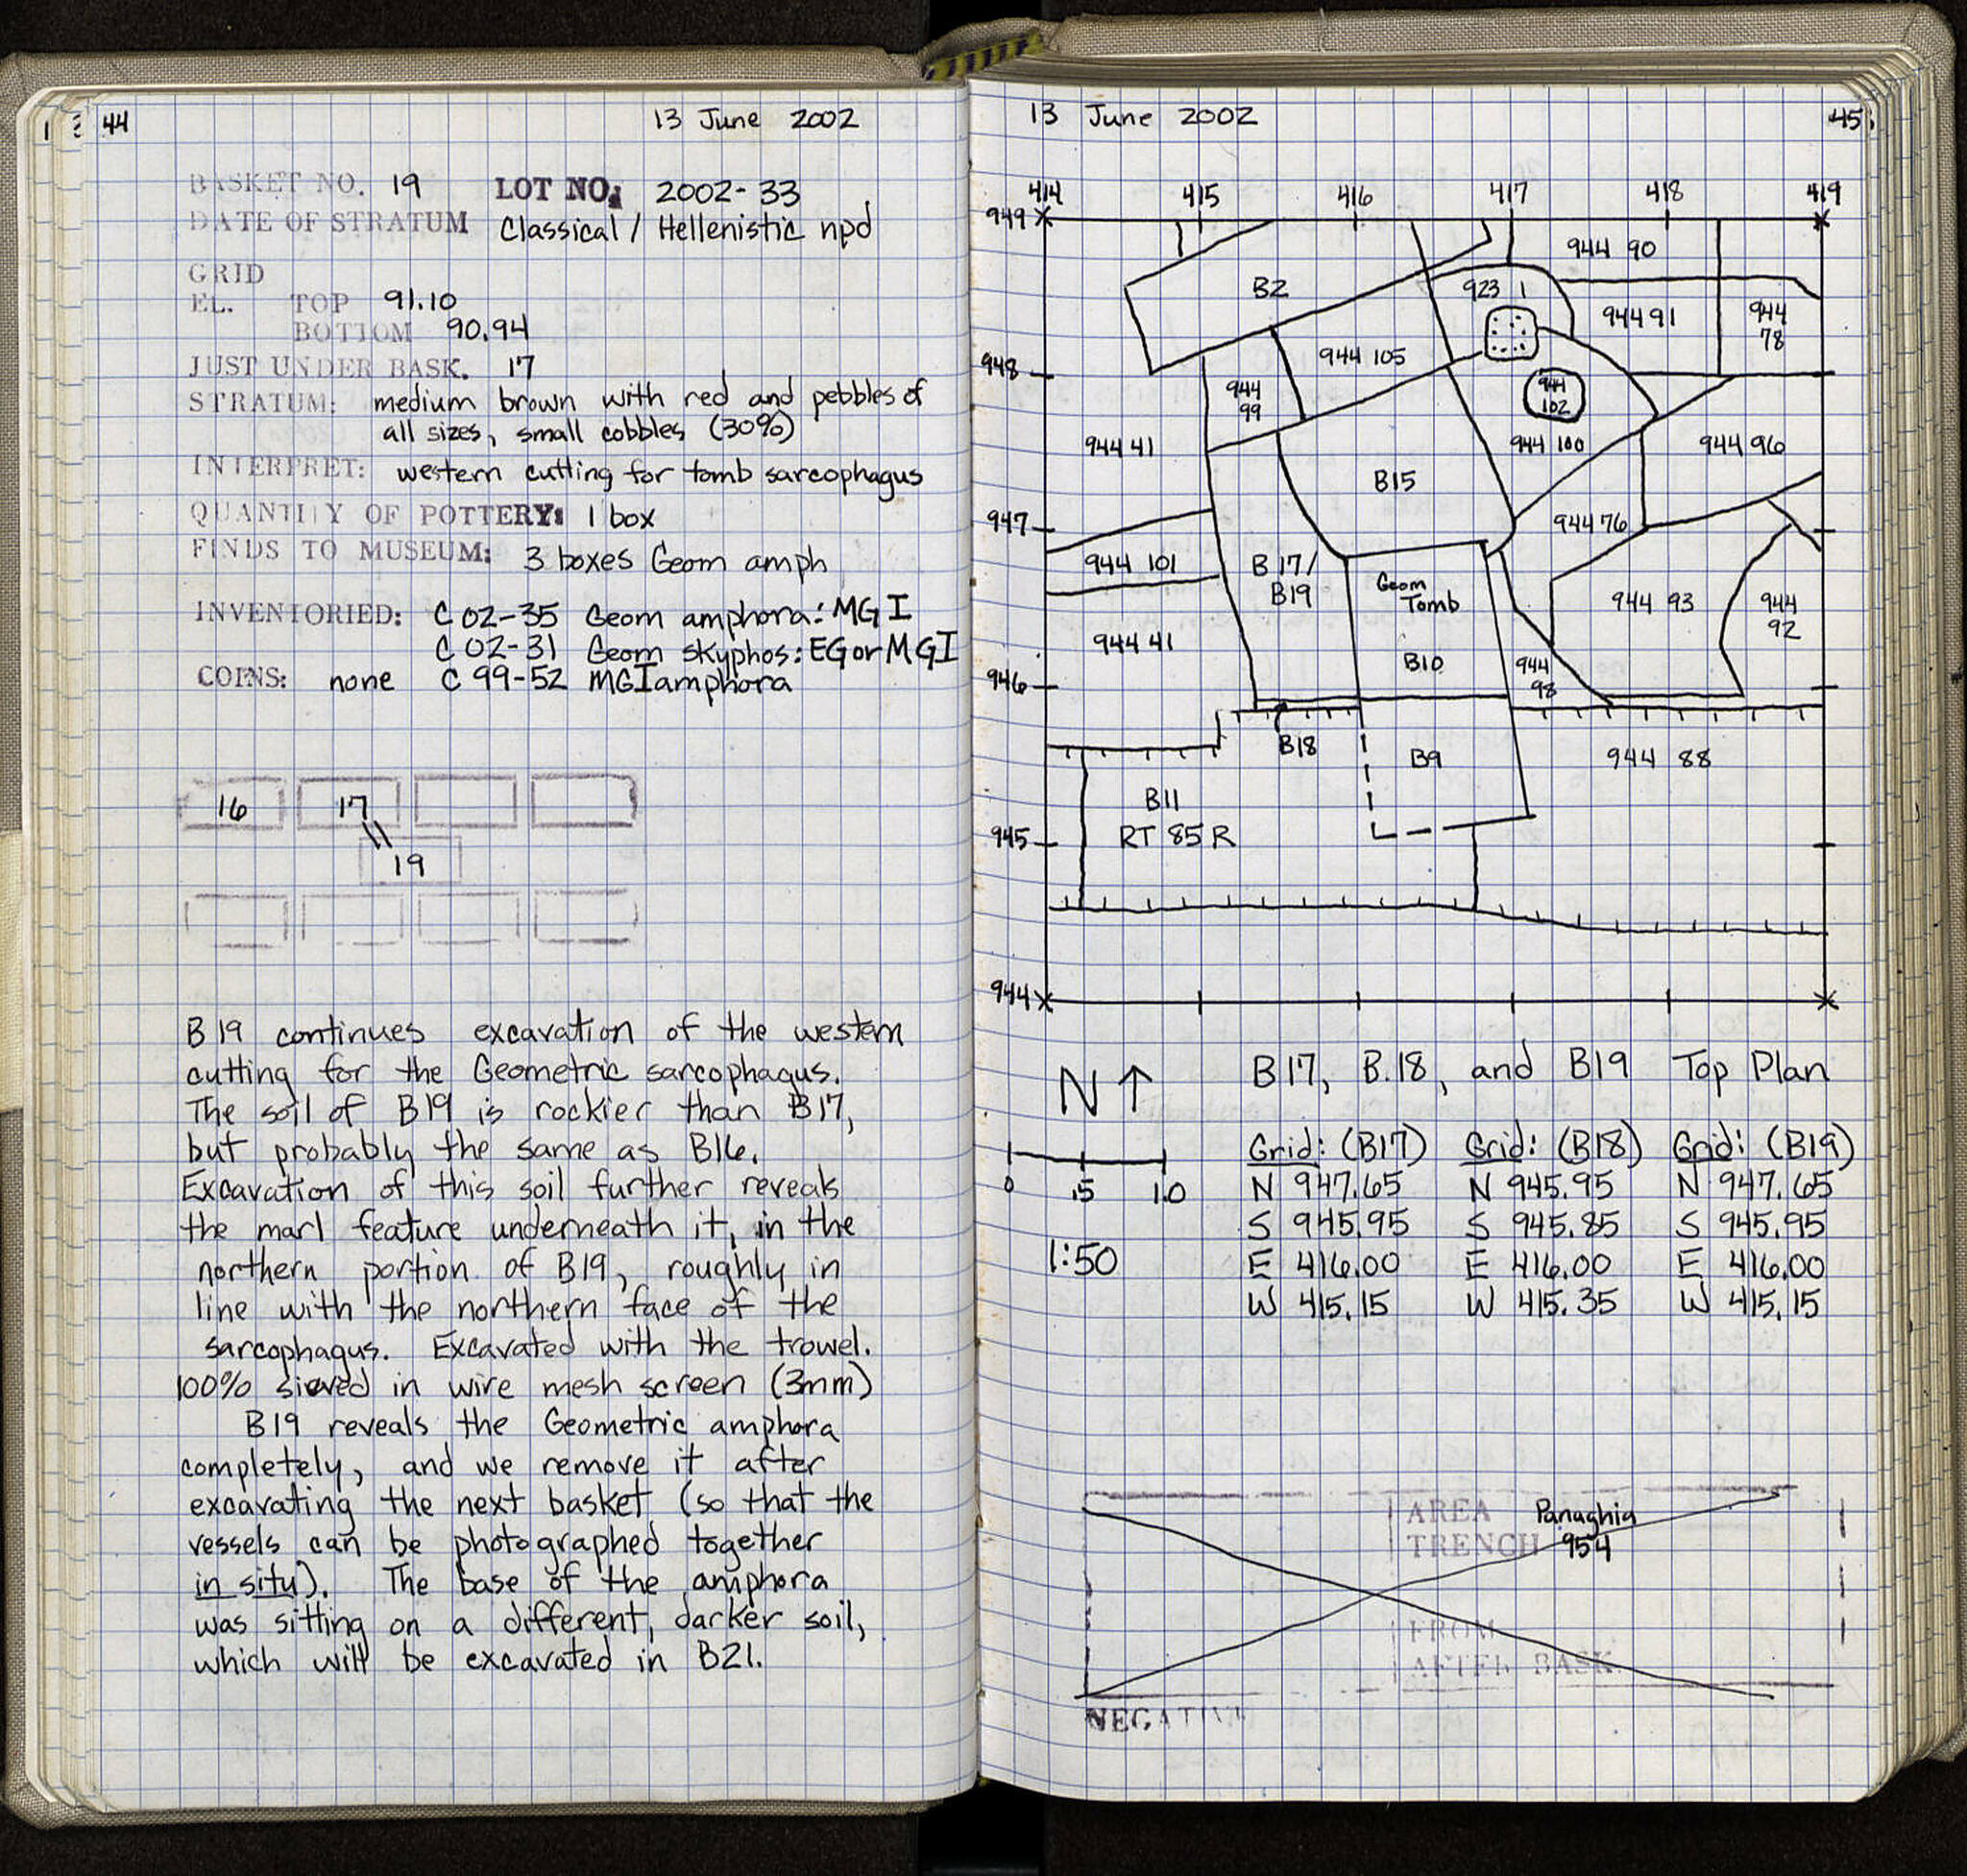 44
13 June 2002
BASKET NO. 19 LOT NO. 2002-33
DATE OF STRATUM Classical / Hellenistic npd
GRID
EL. TOP 91.10
BOTTOM 90.94
JUST UNDER BASK. 17
STRATUM: medium brown with red and pebbles of
all sizes, small cobbles (30%)
INTERPRET: western cutting for tomb sarcophagus
QUANTITY OF POTTERY: 1 box
FINDS TO MUSEUM: 3 boxes Geom amph
INVENTORIED: C 02-35 Geom amphora: MG I
C 02-31 Geom skyphos: EG or MGI
COINS: none C 99-52 MGI amphora
16 17
19
B19 continues excavation of the western
cutting for the Geometric sarcophagus.
The soil of B19 is rockier than B17,
but probably the same as B16.
Excavation of this soil further reveals
the marl feature underneath it, in the
northern portion of B19, roughly in
line with the northern face of the
sarcophagus. Excavated with the trowel.
100% sieved in wire mesh screen (3mm)
B19 reveals the Geometric amphora
completely, and we remove it after
excavating the next basket (so that the
vessels can be photographed together
in situ). The base of the amphora
was sitting on a different, darker soil,
which will be excavated in B21.
13 June 2002
45
414 415 416 417 418 419
949
944 90
B2
923 1
944 91
944
78
948
944 105
944
99
944
102
944 41
944 100
944 96
B15
947
944 76
944 101
B17/
B19
Geom
Tomb
944 93
944
92
944 41
B10
944
98
946
B18
B9
944 88
B11
RT 85 R
945
944
N ↑
B17, B.18, and B19 Top Plan
0 .5 1.0
1:50
Grid: (B17) Grid: (B18) Grid: (B19)
N 947.65 N 945.95 N 947.65
S 945.95 S 945.85 S 945.95
E 416.00 E 416.00 E 416.00
W 415.15 W 415.35 W 415.15
AREA Panaghia
TRENCH 954
FROM
AFTER BASK.
NEGATIVE